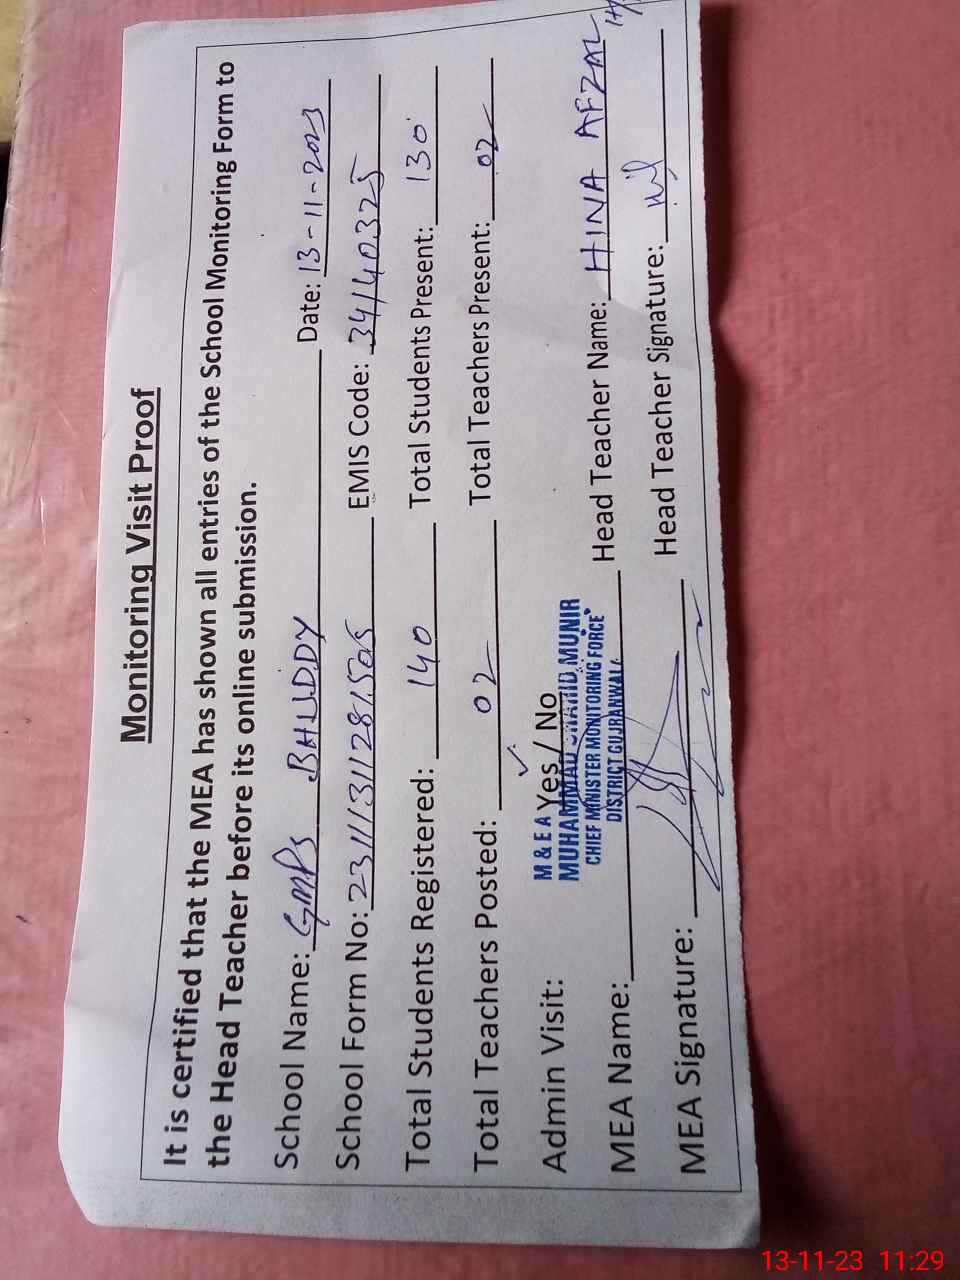 Monitoring Visit Proof
It is certified that the MEA has shown all entries of the School Monitoring Form to
the Head Teacher before its online submission.
School Name: GMPS BHUDDY Date: 13-11-2023
School Form No: EMIS Code: 34140325
Total Students Registered: 140 Total Students Present: 130
Total Teachers Posted: 02 Total Teachers Present: 02
Admin Visit: Yes / No
M & E A
MUHAMMAD SHAHID MUNIR
CHIEF MINISTER MONITORING FORCE
DISTRICT GUJRANWALA
MEA Name: Head Teacher Name: HINA AFZAL
MEA Signature: Head Teacher Signature:
13-11-23 11:29